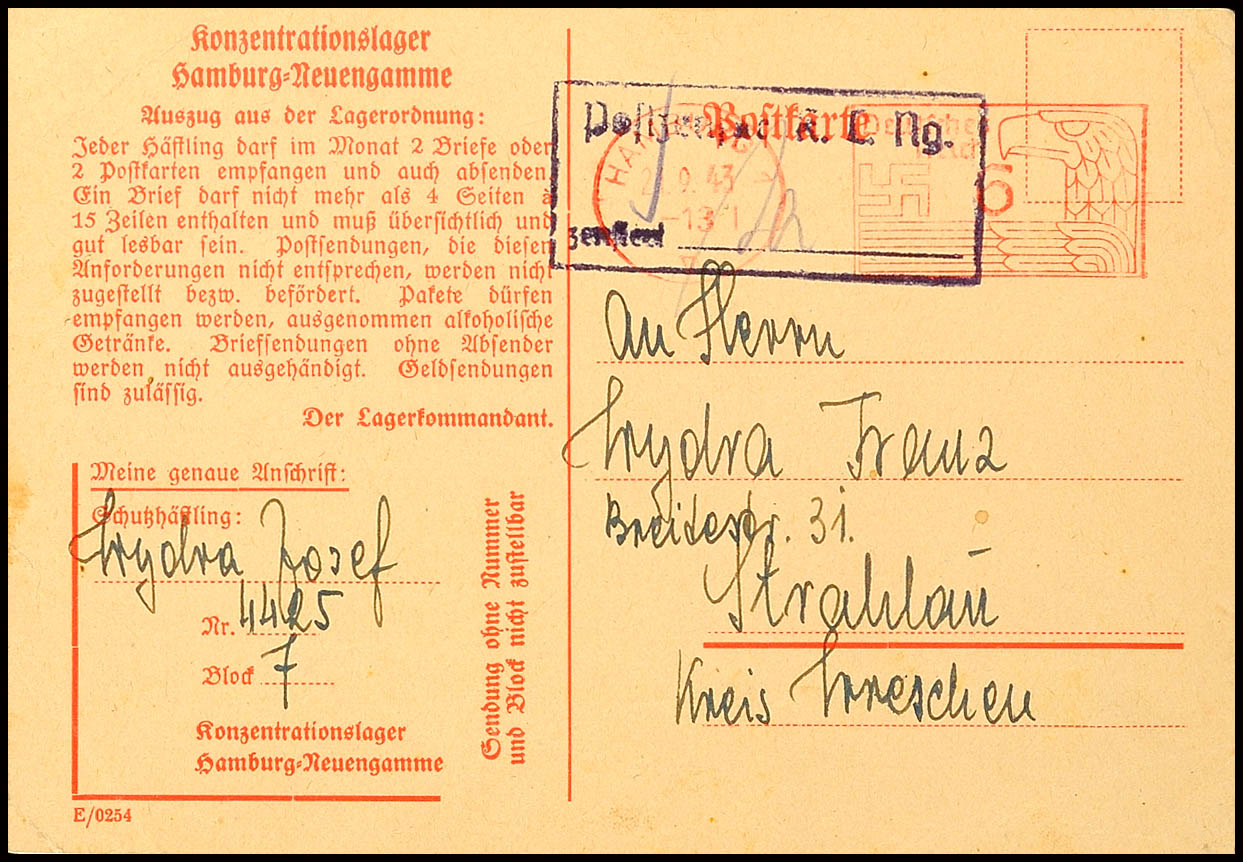 Konzentrationslager
Hamburg=Neuengamme
Auszug aus der Lagerordnung:
Jeder Häftling darf im Monat 2 Briefe oder
2 Postkarten empfangen und auch absenden.
Ein Brief darf nicht mehr als 4 Seiten à
15 Zeilen enthalten und muß übersichtlich und
gut lesbar sein. Postsendungen, die diesen
Anforderungen nicht entsprechen, werden nicht
zugestellt bezw. befördert. Pakete dürfen
empfangen werden, ausgenommen alkoholische
Getränke. Briefsendungen ohne Absender
werden nicht ausgehändigt. Geldsendungen
sind zulässig.
Der Lagerkommandant.
Meine genaue Anschrift:
Schutzhäftling:
Wydra Josef
Nr. 4425
Block 7
Konzentrationslager
Hamburg=Neuengamme
Sendung ohne Nummer
und Block nicht zustellbar
E/0254
Postkarte
Postzensur K. L. Ng.
zensiert
9. 43
-13
Deutsches
Reich
6
An Herrn
Wydra Franz
Breitestr. 31.
Strahlau
Kreis Wreschen